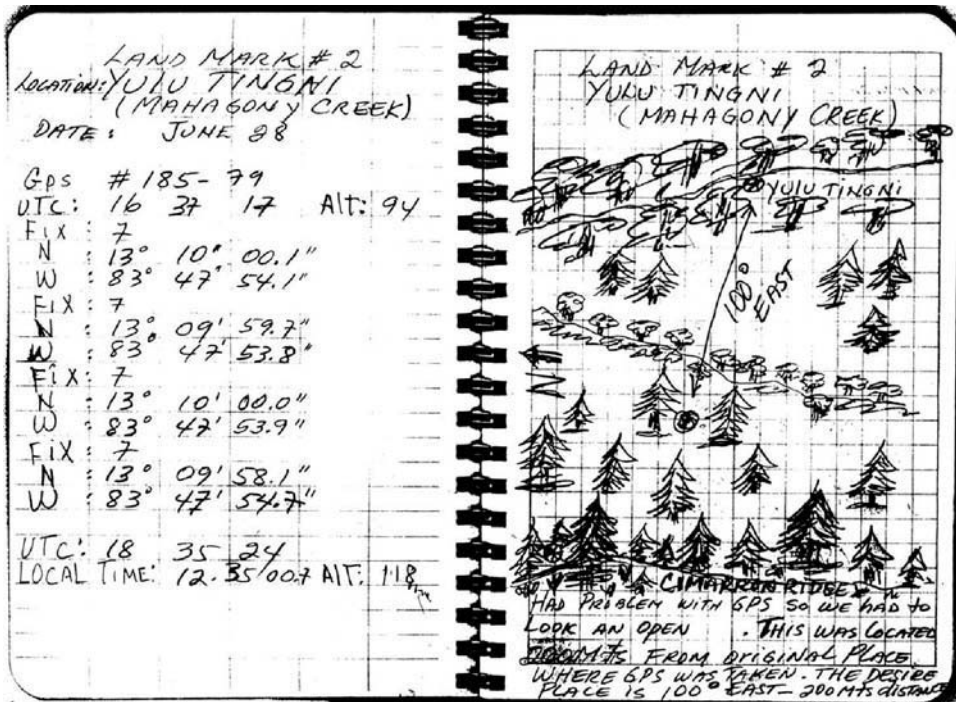 LAND MARK # 2
LOCATION: YULU TINGNI
(MAHAGONY CREEK)
DATE: JUNE 28
GPS # 185-79
UTC: 16 37 17 Alt: 94
FIX: 7
N : 13° 10' 00.1"
W : 83° 47' 54.1"
FIX: 7
N : 13° 09' 59.7"
W : 83° 47' 53.8"
FIX: 7
N : 13° 10' 00.0"
W : 83° 47' 53.9"
FIX: 7
N : 13° 09' 58.1"
W : 83° 47' 54.7"
UTC: 18 35 24
LOCAL TIME: 12.35 007 AlT: 118
LAND MARK # 2
YULU TINGNI
(MAHAGONY CREEK)
YULU TINGNI
100° EAST
N
CIMARRON RIDGE
HAD PROBLEM WITH GPS SO WE HAD TO
LOOK AN OPEN . THIS WAS LOCATED
200MTS FROM ORIGINAL PLACE
WHERE GPS WAS TAKEN. THE DESIRE
PLACE IS 100° EAST - 200 MTS DISTANCE